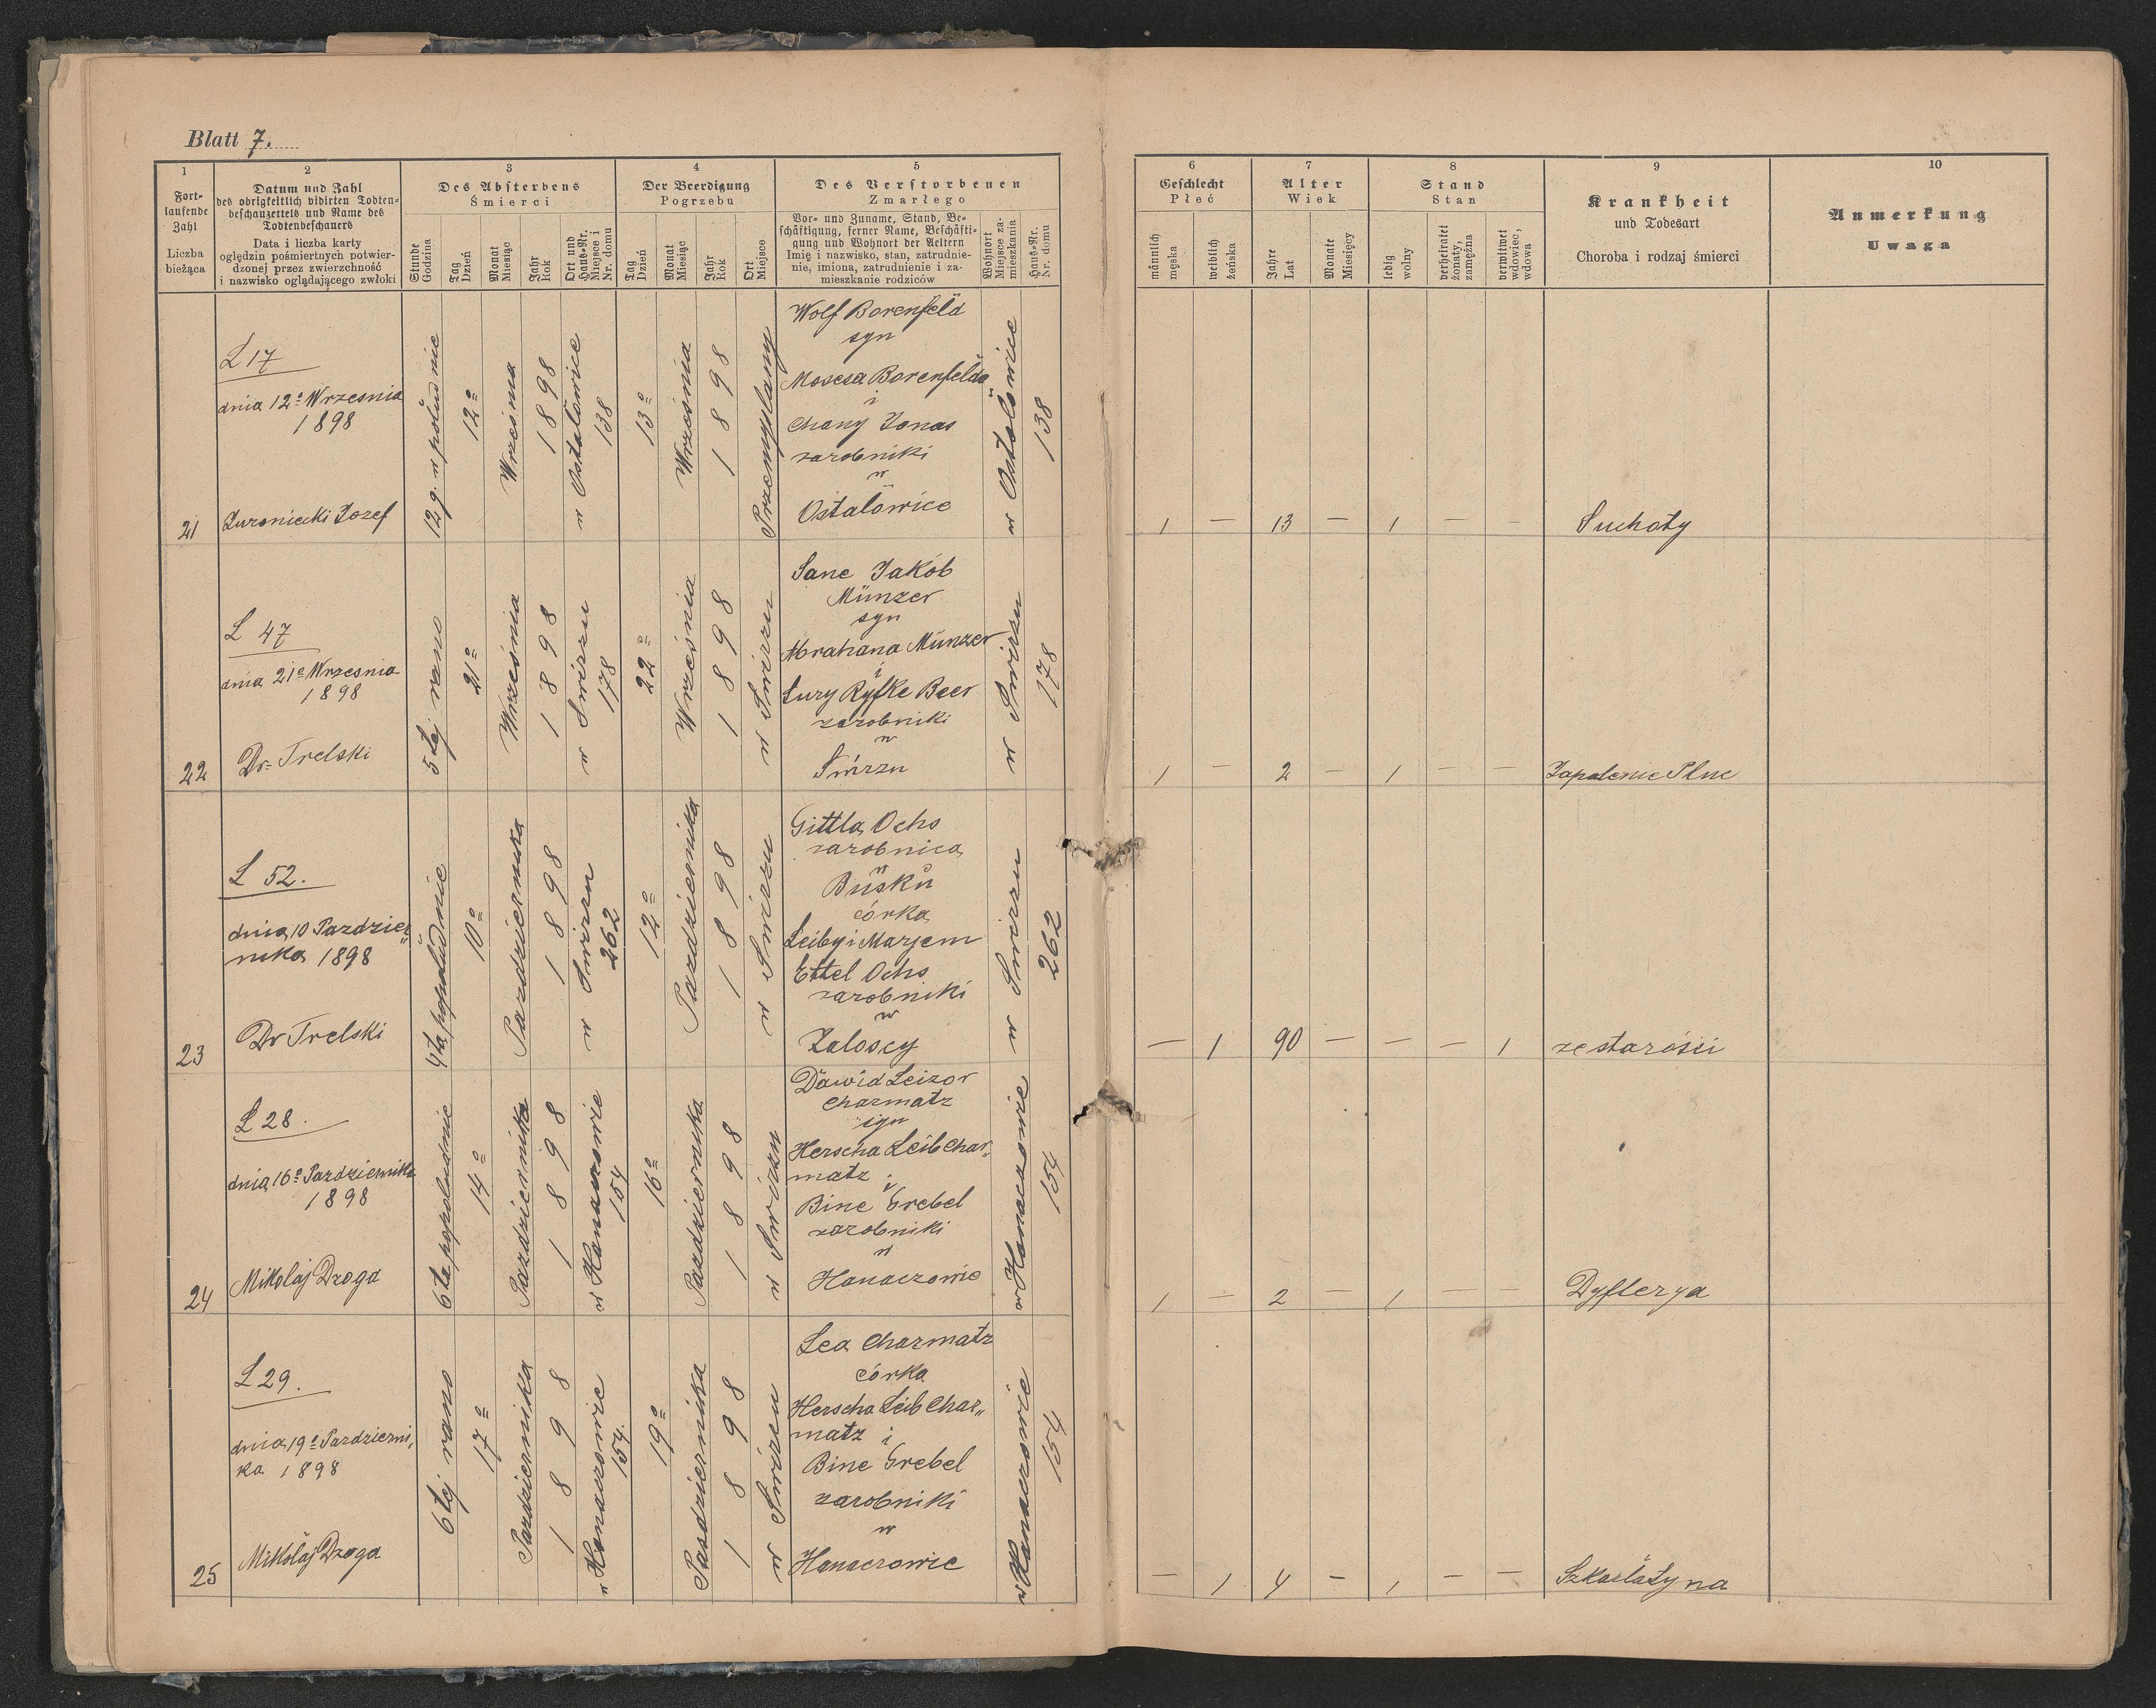 Blatt 7.
1
Fort-
laufende
Zahl
Liczba
bieżąca
2
Datum und Zahl
des obrigkeitlich vidirten Todten-
beschauzettels und Name des
Todtenbeschauers
Data i liczba karty
oględzin pośmiertnych potwier-
dzonej przez zwierzchność
i nazwisko oglądającego zwłoki
3
Des Absterbens
Śmierci
Stunde
Godzina
Tag
Dzień
Monat
Miesiąc
Jahr
Rok
Ort und
Haus-Nr.
Miejsce i
Nr. domu
4
Der Beerdigung
Pogrzebu
Tag
Dzień
Monat
Miesiąc
Jahr
Rok
Ort
Miejsce
5
Des Verstorbenen
Zmarłego
Vor- und Zuname, Stand, Be-
schäftigung, ferner Name, Beschäfti-
gung und Wohnort der Aeltern
Imię i nazwisko, stan, zatrudnie-
nie, imiona, zatrudnienie i za-
mieszkanie rodziców
Wohnort
Miejsce za-
mieszkania
Haus-Nr.
Nr. domu
6
Geschlecht
Płeć
männlich
męska
weiblich
żeńska
7
Alter
Wiek
Jahre
Lat
Monate
Miesięcy
8
Stand
Stan
ledig
wolny
verheiratet
żonaty,
zamężna
verwitwet
wdowiec,
wdowa
9
Krankheit
und Todesart
Choroba i rodzaj śmierci
10
Anmerkung
Uwaga
21
L 17
dnia 12º Wrzesnia
1898
Zuroniecki Jozef
12 g. w południe
12º
Wrzesnia
1898
w Ostałowice
138
13º
Wrzesnia
1898
Przemyślany
Wolf Borenfeld
syn
Mosesa Borenfelda
i
Chany Jonas
zarobniki
w
Ostałowice
w Ostałowice
138
1 — 13 — 1 — —
Suchoty
22
L 47
dnia 21º Wrzesnia
1898
Dr Trelski
5 tej rano
21º
Września
1898
w Swirzu
178
22º
Września
1898
w Swirzu
Sane Jakób
Münzer
syn
Abrahana Münzer
i
Sury Ryfke Beer
zarobniki
w
Swirzu
w Swirzu
178
1 — 2 — 1 — —
Zapalenie Pluc
23
L 52.
dnia 10 Pazdzier
nika 1898
Dr Trelski
4ta popołudnie
10º
Pazdziernika
1898
w Swirzu
262
12º
Pazdziernika
1898
w Swirzu
Gittla Ochs
zarobnica
w
Busku
córka
Leiby i Marjem
Ettel Ochs
zarobniki
w
Zaloscy
w Swirzu
262
— 1 90 — — — 1
ze starości
24
L 28.
dnia 16º Pazdziernika
1898
Mikołaj Dzoga
6ta popołudnie
14º
Pazdziernika
1898
w Hanaczowie
154
16º
Pazdziernika
1898
w Swirzu
Dawid Leizor
Charmatz
syn
Herscha Leib Char„
matz i
Bine Grebel
zarobniki
w
Hanaczowie
w Hanaczowie
154
1 — 2 — 1 — —
Dyfterya
25
L 29.
dnia 19º Pazdzierni,
ka 1898
Mikołaj Dzoga
6 tej rano
17º
Pazdziernika
1898
w Hanaczowie
154.
19º
Pasdziernika
1898
w Swirzu
Lea Charmatz
córka
Herscha Leib Char„
matz i
Bine Grebel
zarobniki
w
Hanaczowie
w Hanaczowie
154
— 1 4 — 1 — —
Szkarlatyna